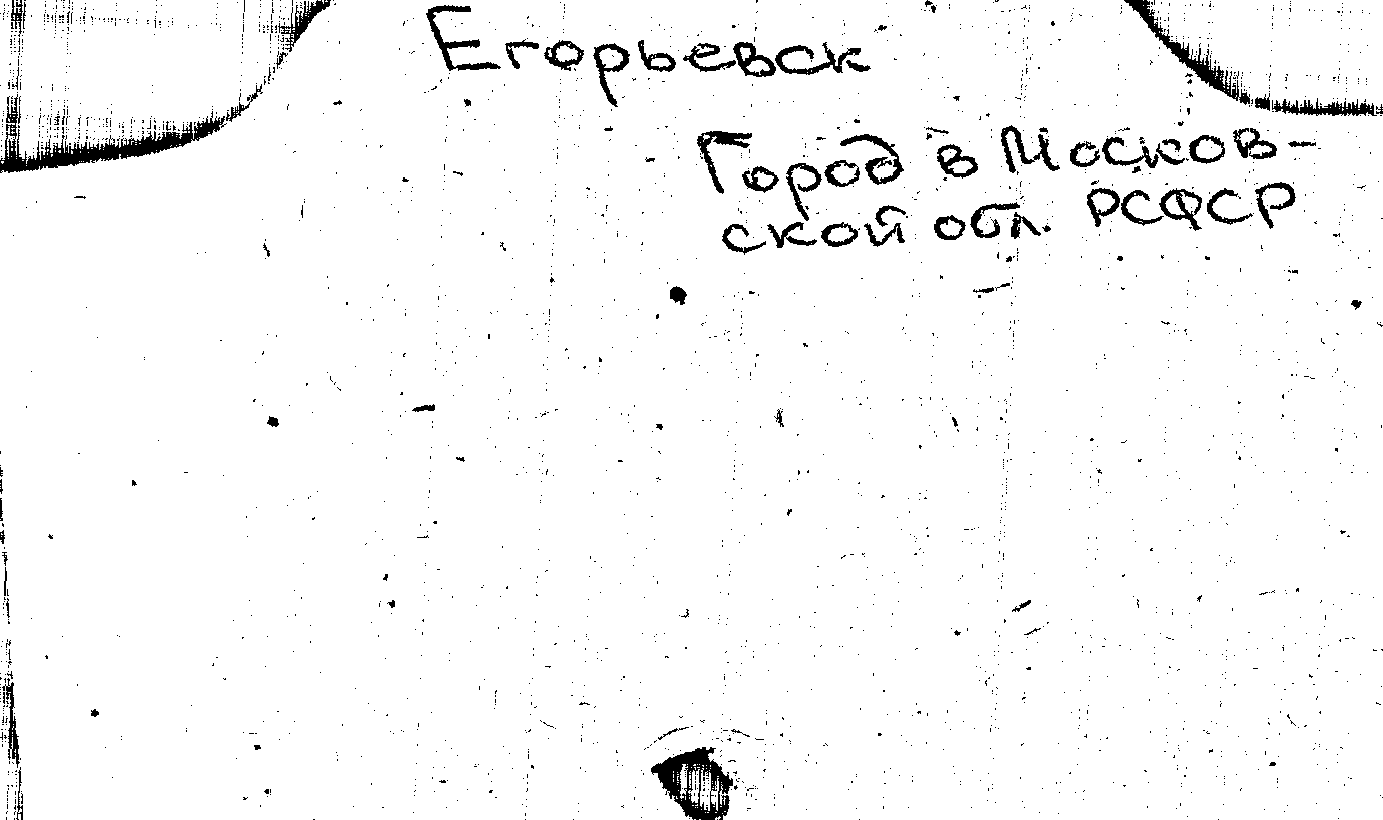 Егорьевск
Город в Москов-
ской обл. РСФСР